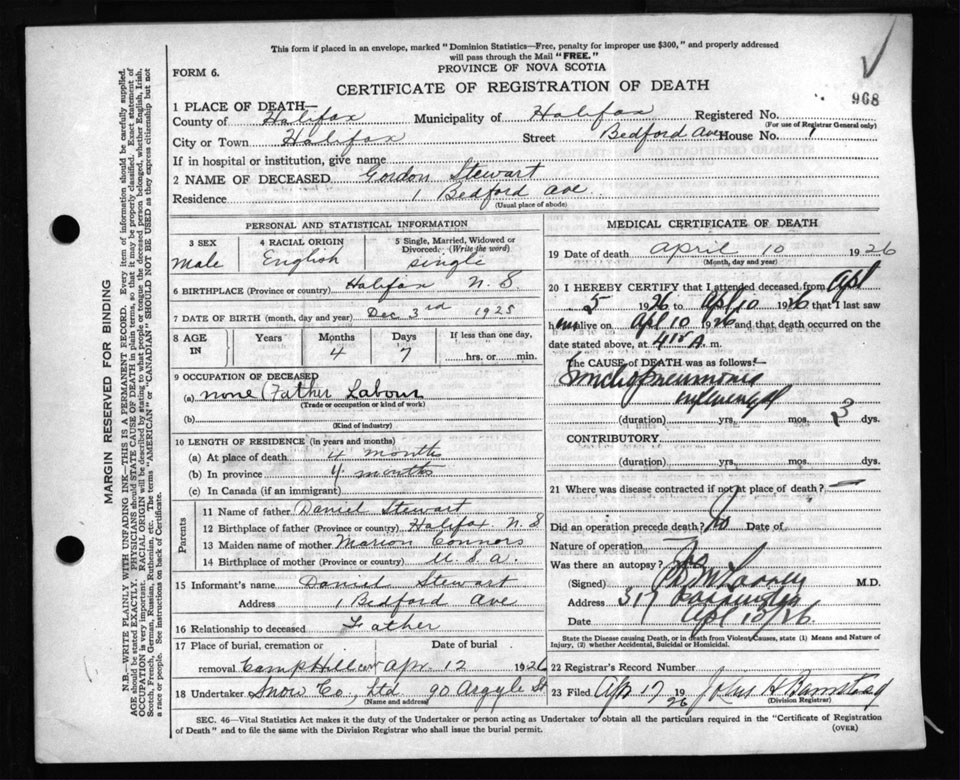 This form if placed in an envelope, marked "Dominion Statistics—Free, penalty for improper use $300," and properly addressed
will pass through the Mail "FREE."
PROVINCE OF NOVA SCOTIA
FORM 6.
CERTIFICATE OF REGISTRATION OF DEATH
968
1 PLACE OF DEATH—
County of Halifax Municipality of Halifax Registered No.
(For use of Registrar General only)
City or Town Halifax Street Bedford Ave House No. 1
If in hospital or institution, give name
2 NAME OF DECEASED Gordon Stewart
Residence 1 Bedford Ave
(Usual place of abode)
PERSONAL AND STATISTICAL INFORMATION
3 SEX 4 RACIAL ORIGIN 5 Single, Married, Widowed or Divorced. (Write the word)
Male English single
6 BIRTHPLACE (Province or country) Halifax N. S
7 DATE OF BIRTH (month, day and year) Dec 3rd 1925
8 AGE IN Years Months Days If less than one day,
4 7 hrs. or min.
9 OCCUPATION OF DECEASED
(a) none (Father Labour
(Trade or occupation or kind of work)
(b)
(Kind of industry)
10 LENGTH OF RESIDENCE (in years and months)
(a) At place of death 4 months
(b) In province 4 months
(c) In Canada (if an immigrant)
Parents
11 Name of father Daniel Stewart
12 Birthplace of father (Province or country) Halifax N. S
13 Maiden name of mother Marion Connors
14 Birthplace of mother (Province or country) U. S. A.
15 Informant's name Daniel Stewart
Address 1 Bedford Ave
16 Relationship to deceased Father
17 Place of burial, cremation or removal Date of burial
Camp Hill Apr 12 1926
18 Undertaker Snow Co, Ltd 90 Argyle St
(Name and address)
MEDICAL CERTIFICATE OF DEATH
19 Date of death April 10 1926
(Month, day and year)
20 I HEREBY CERTIFY that I attended deceased from Apl
5 1926 to Apl 10 1926 that I last saw
him alive on Apl 10 1926 and that death occurred on
date stated above, at 415 A. m.
The CAUSE OF DEATH was as follows:
(duration) yrs. mos. 3 dys.
CONTRIBUTORY
(duration) yrs. mos. dys.
21 Where was disease contracted if not at place of death?
Did an operation precede death? No Date of
Nature of operation
Was there an autopsy? No
(Signed) M.D.
Address 317
Apl 10/26
State the Disease causing Death, or in death from Violent Causes, state (1) Means and Nature of
Injury, (2) whether Accidental, Suicidal or Homicidal.
22 Registrar's Record Number
23 Filed Apr 17 1926 John H
(Division Registrar)
SEC. 46—Vital Statistics Act makes it the duty of the Undertaker or person acting as Undertaker to obtain all the particulars required in the "Certificate of Registration
of Death" and to file the same with the Division Registrar who shall issue the burial permit.
(OVER)
MARGIN RESERVED FOR BINDING
N.B.—WRITE PLAINLY WITH UNFADING INK—THIS IS A PERMANENT RECORD. Every item of information should be carefully supplied.
AGE should be stated EXACTLY. PHYSICIANS should STATE CAUSE OF DEATH in plain terms, so that it may be properly classified. Exact statement of
OCCUPATION is very important. RACIAL ORIGIN will be described by stating to what people or tongue the deceased person belonged, whether English, Irish,
Scotch, French, German, Russian, Ruthenian, etc. The terms "AMERICAN" or "CANADIAN" SHOULD NOT BE USED as they express citizenship but not
a race or people. See instructions on back of Certificate.